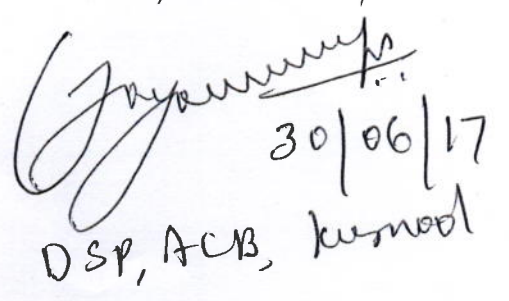 30/06/17
DSP, ACB, Kurnool